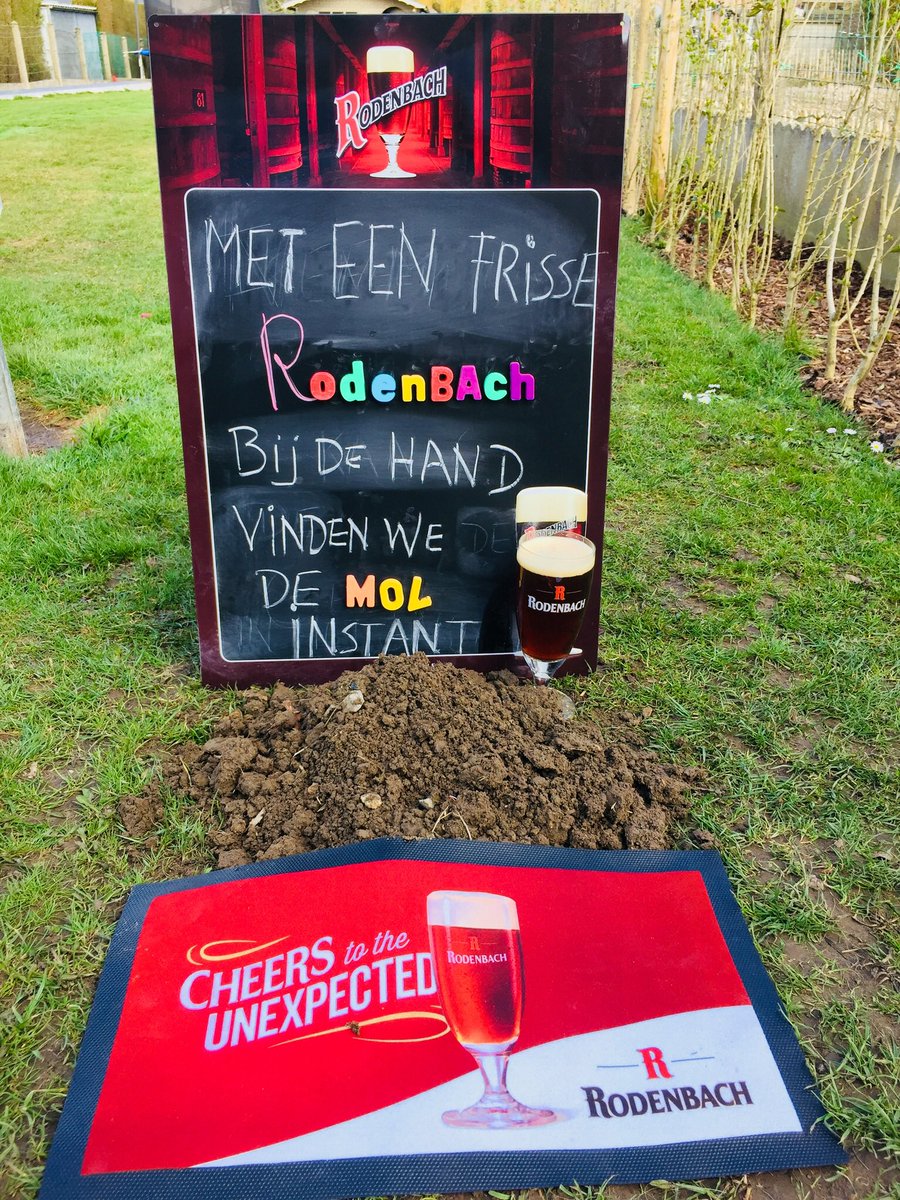 81
RODENBACH
MET EEN FRISSE
RodenBAch
Bij DE HAND
VINDEN WE
DE MOL
INSTANT
RODENBACH
R
RODENBACH
CHEERS to the
UNEXPECTED
RODENBACH
R
RODENBACH